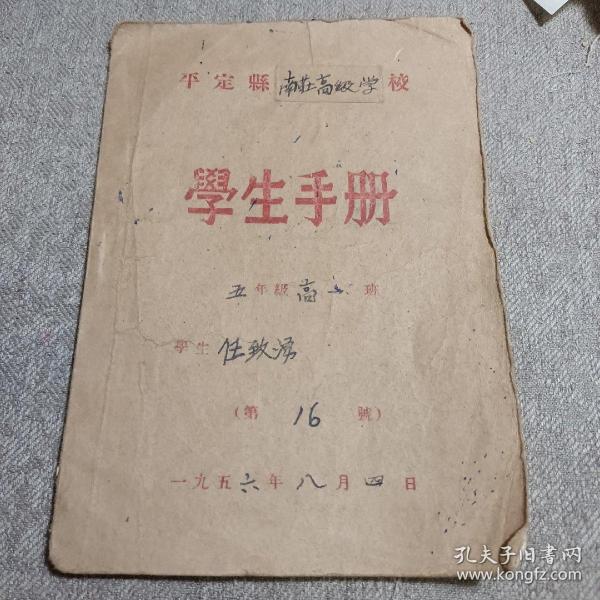 平定縣南莊高级学校
學生手册
五年級高 班
學生 任致
(第 16 號)
一九五六年八月四日
孔夫子旧书网
www.kongfz.com